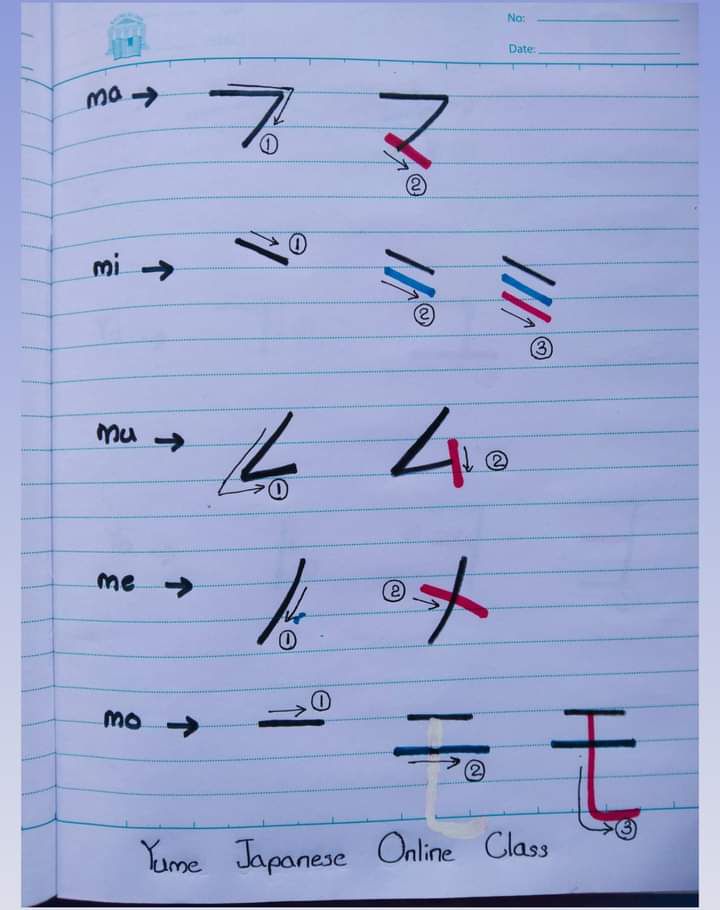 No:
Date:
ma → ① ②
mi → ① ② ③
mu → ① ②
me → ① ②
mo → ① ② ③
Yume Japanese Online Class